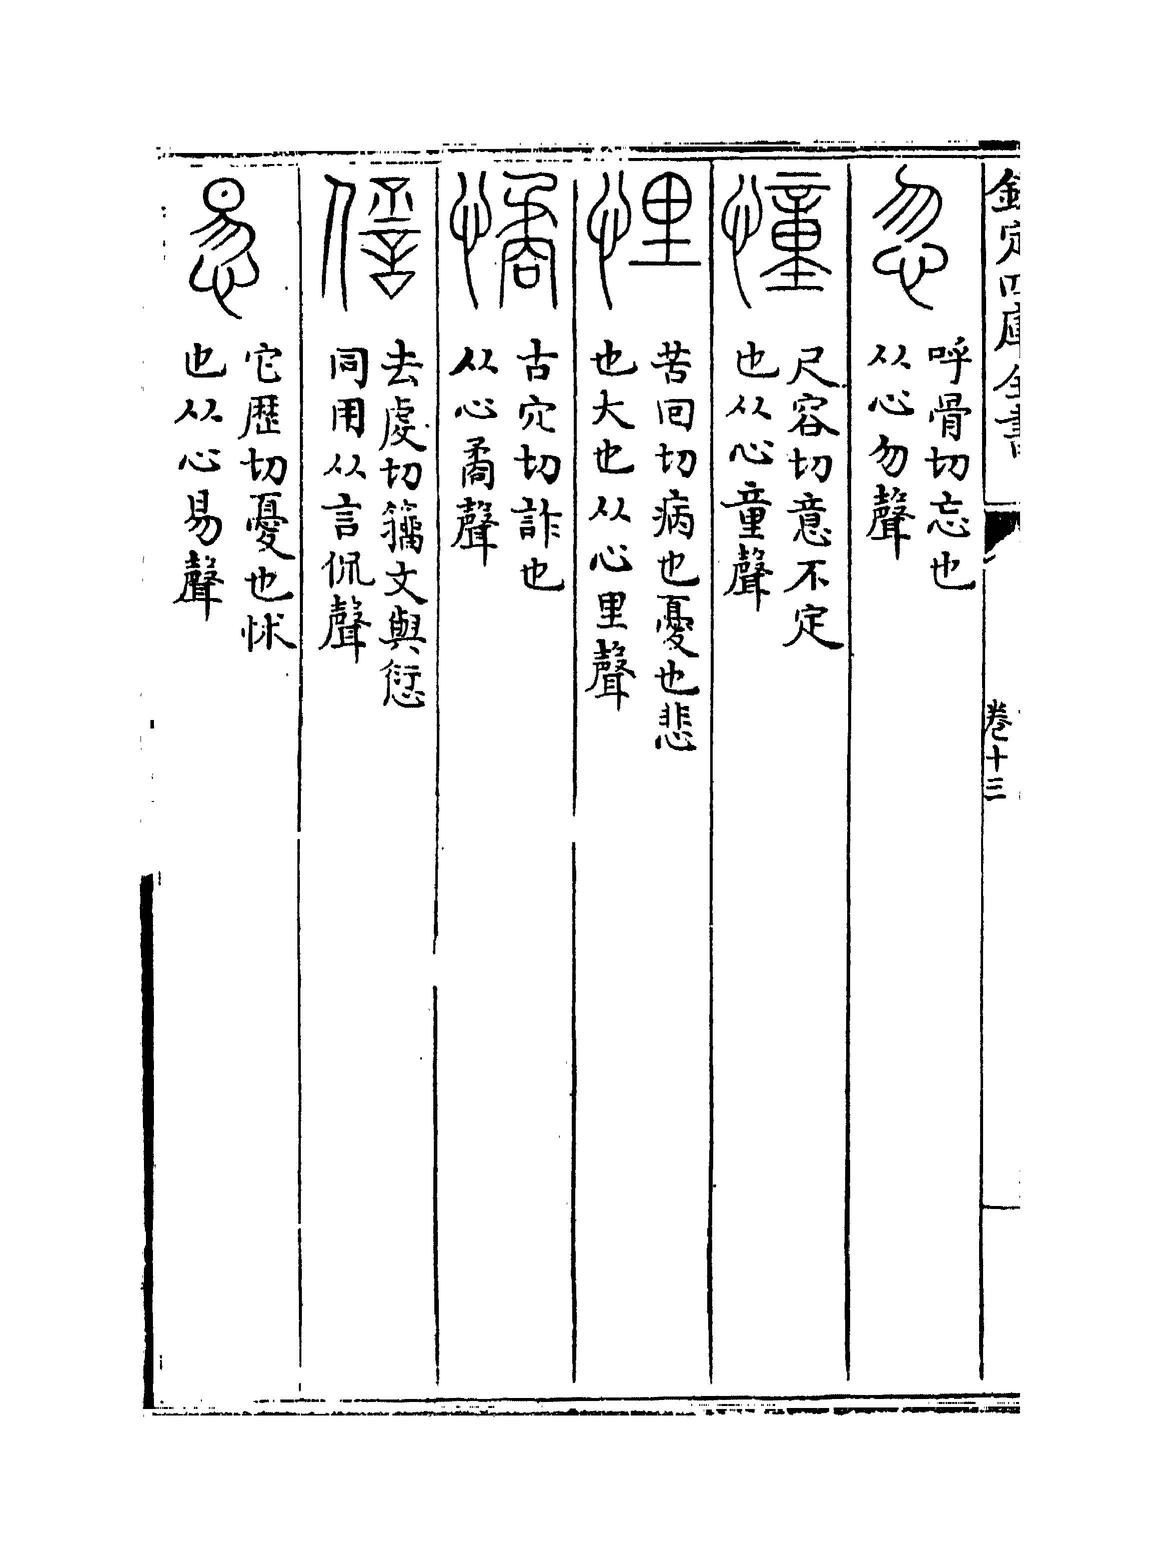 欽定四庫全書
卷十三
忽
呼骨切忘也
从心勿聲
憧
尺容切意不定
也从心童聲
悝
苦回切病也憂也悲
也大也从心里聲
憰
古穴切詐也
从心矞聲
去虔切籒文與愆
同用从言侃聲
惕
它歷切憂也怵
也从心易聲